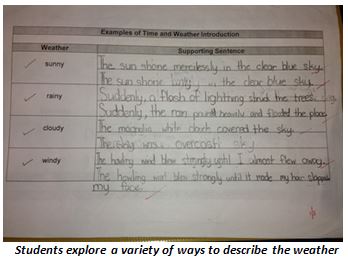 Examples of Time and Weather Introduction
Weather
Supporting Sentence
sunny
The sun shone mercilessly in the clear blue sky.
The sun shone in the clear blue sky.
rainy
Suddenly, a flash of lightning struck the trees.
Suddenly, the rain poured heavily and flooded the place
cloudy
The magnolia white clouds covered the sky.
The sky was overcast sky
windy
The howling wind blew strongly until I almost flew away.
The howling wind blew strongly until it made my hair slapped
my face.
Students explore a variety of ways to describe the weather